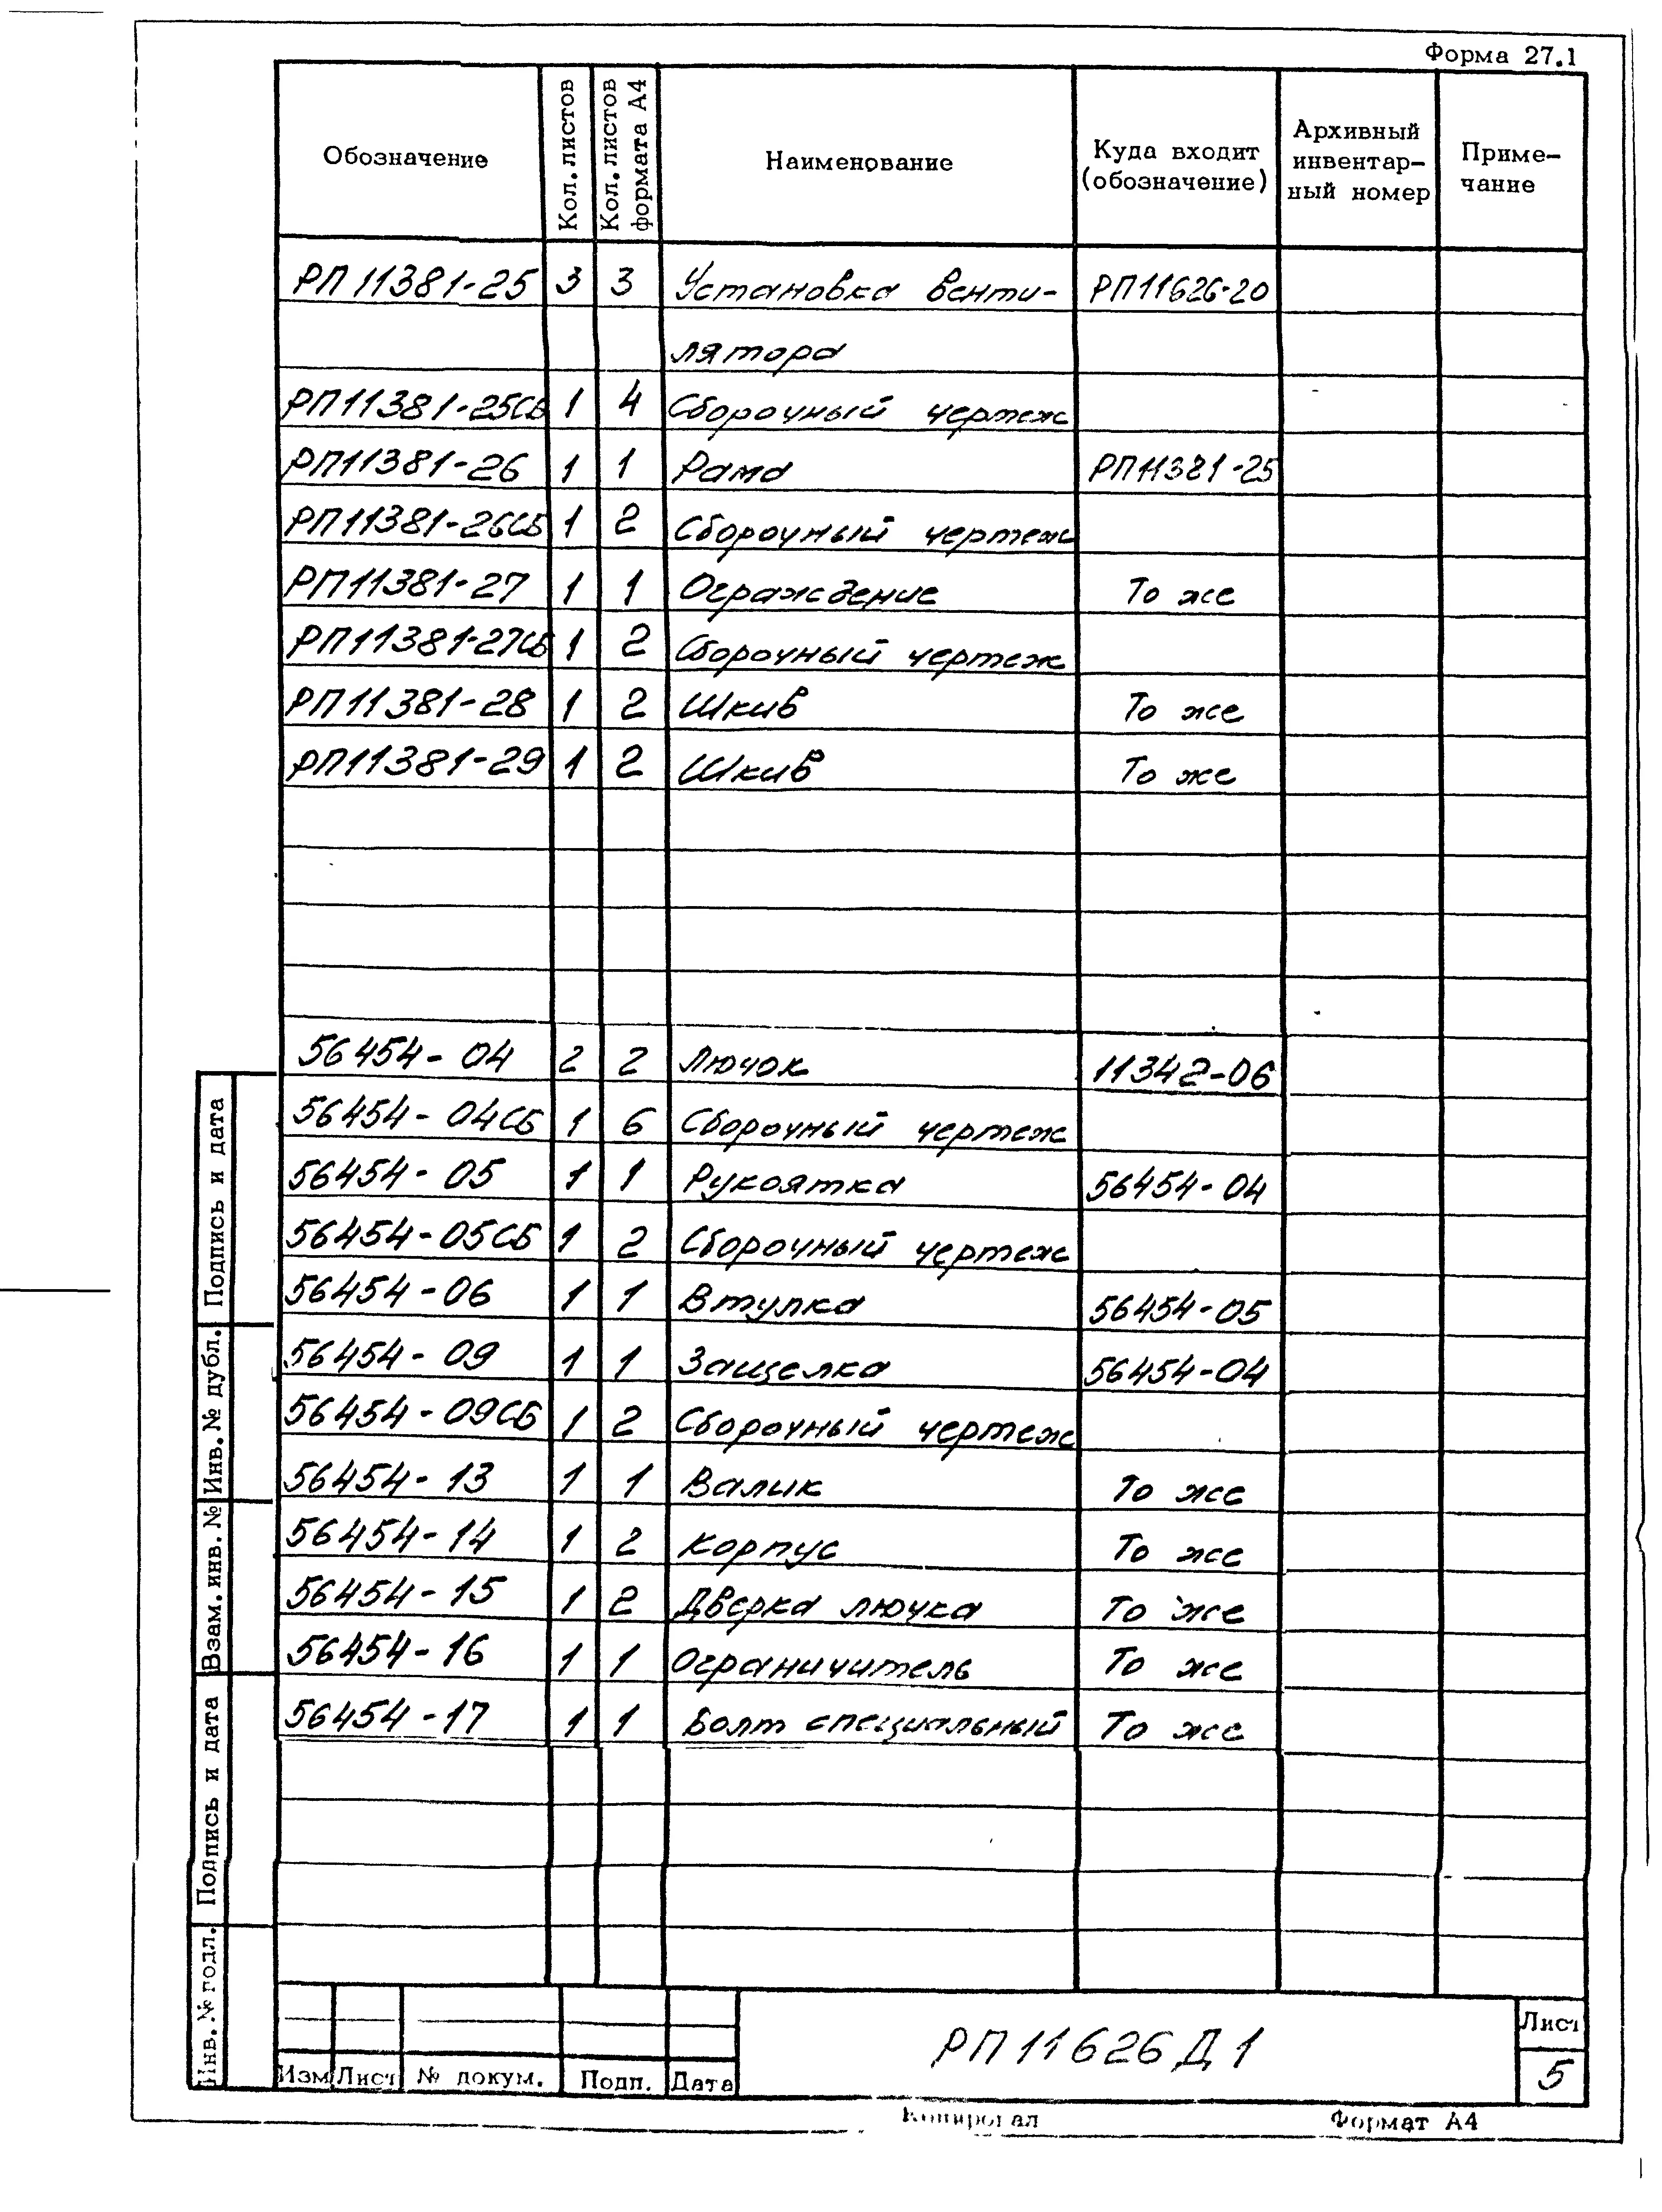 Форма 27.1
Обозначение Кол. листов Кол. листов формата А4 Наименование Куда входит (обозначение) Архивный инвентар- ный номер Приме- чание
РП11381-25 3 3 Установка венти- РП11626-20
лятора
РП11381-25СБ 1 4 Сборочный чертеж
РП11381-26 1 1 Рама РП11381-25
РП11381-26СБ 1 2 Сборочный чертеж
РП11381-27 1 1 Ограждение То же
РП11381-27СБ 1 2 Сборочный чертеж
РП11381-28 1 2 Шкив То же
РП11381-29 1 2 Шкив То же
56454-04 2 2 Лючок 11342-06
56454-04СБ 1 6 Сборочный чертеж
56454-05 1 1 Рукоятка 56454-04
56454-05СБ 1 2 Сборочный чертеж
56454-06 1 1 Втулка 56454-05
56454-09 1 1 Защелка 56454-04
56454-09СБ 1 2 Сборочный чертеж
56454-13 1 1 Валик То же
56454-14 1 2 Корпус То же
56454-15 1 2 Дверка лючка То же
56454-16 1 1 Ограничитель То же
56454-17 1 1 Болт специальный То же
Подпись и дата
Инв. № дубл.
Взам. инв. №
Подпись и дата
Инв. № подл.
Изм Лист № докум. Подп. Дата
РП11626Д1
Лист
5
Копировал Формат А4